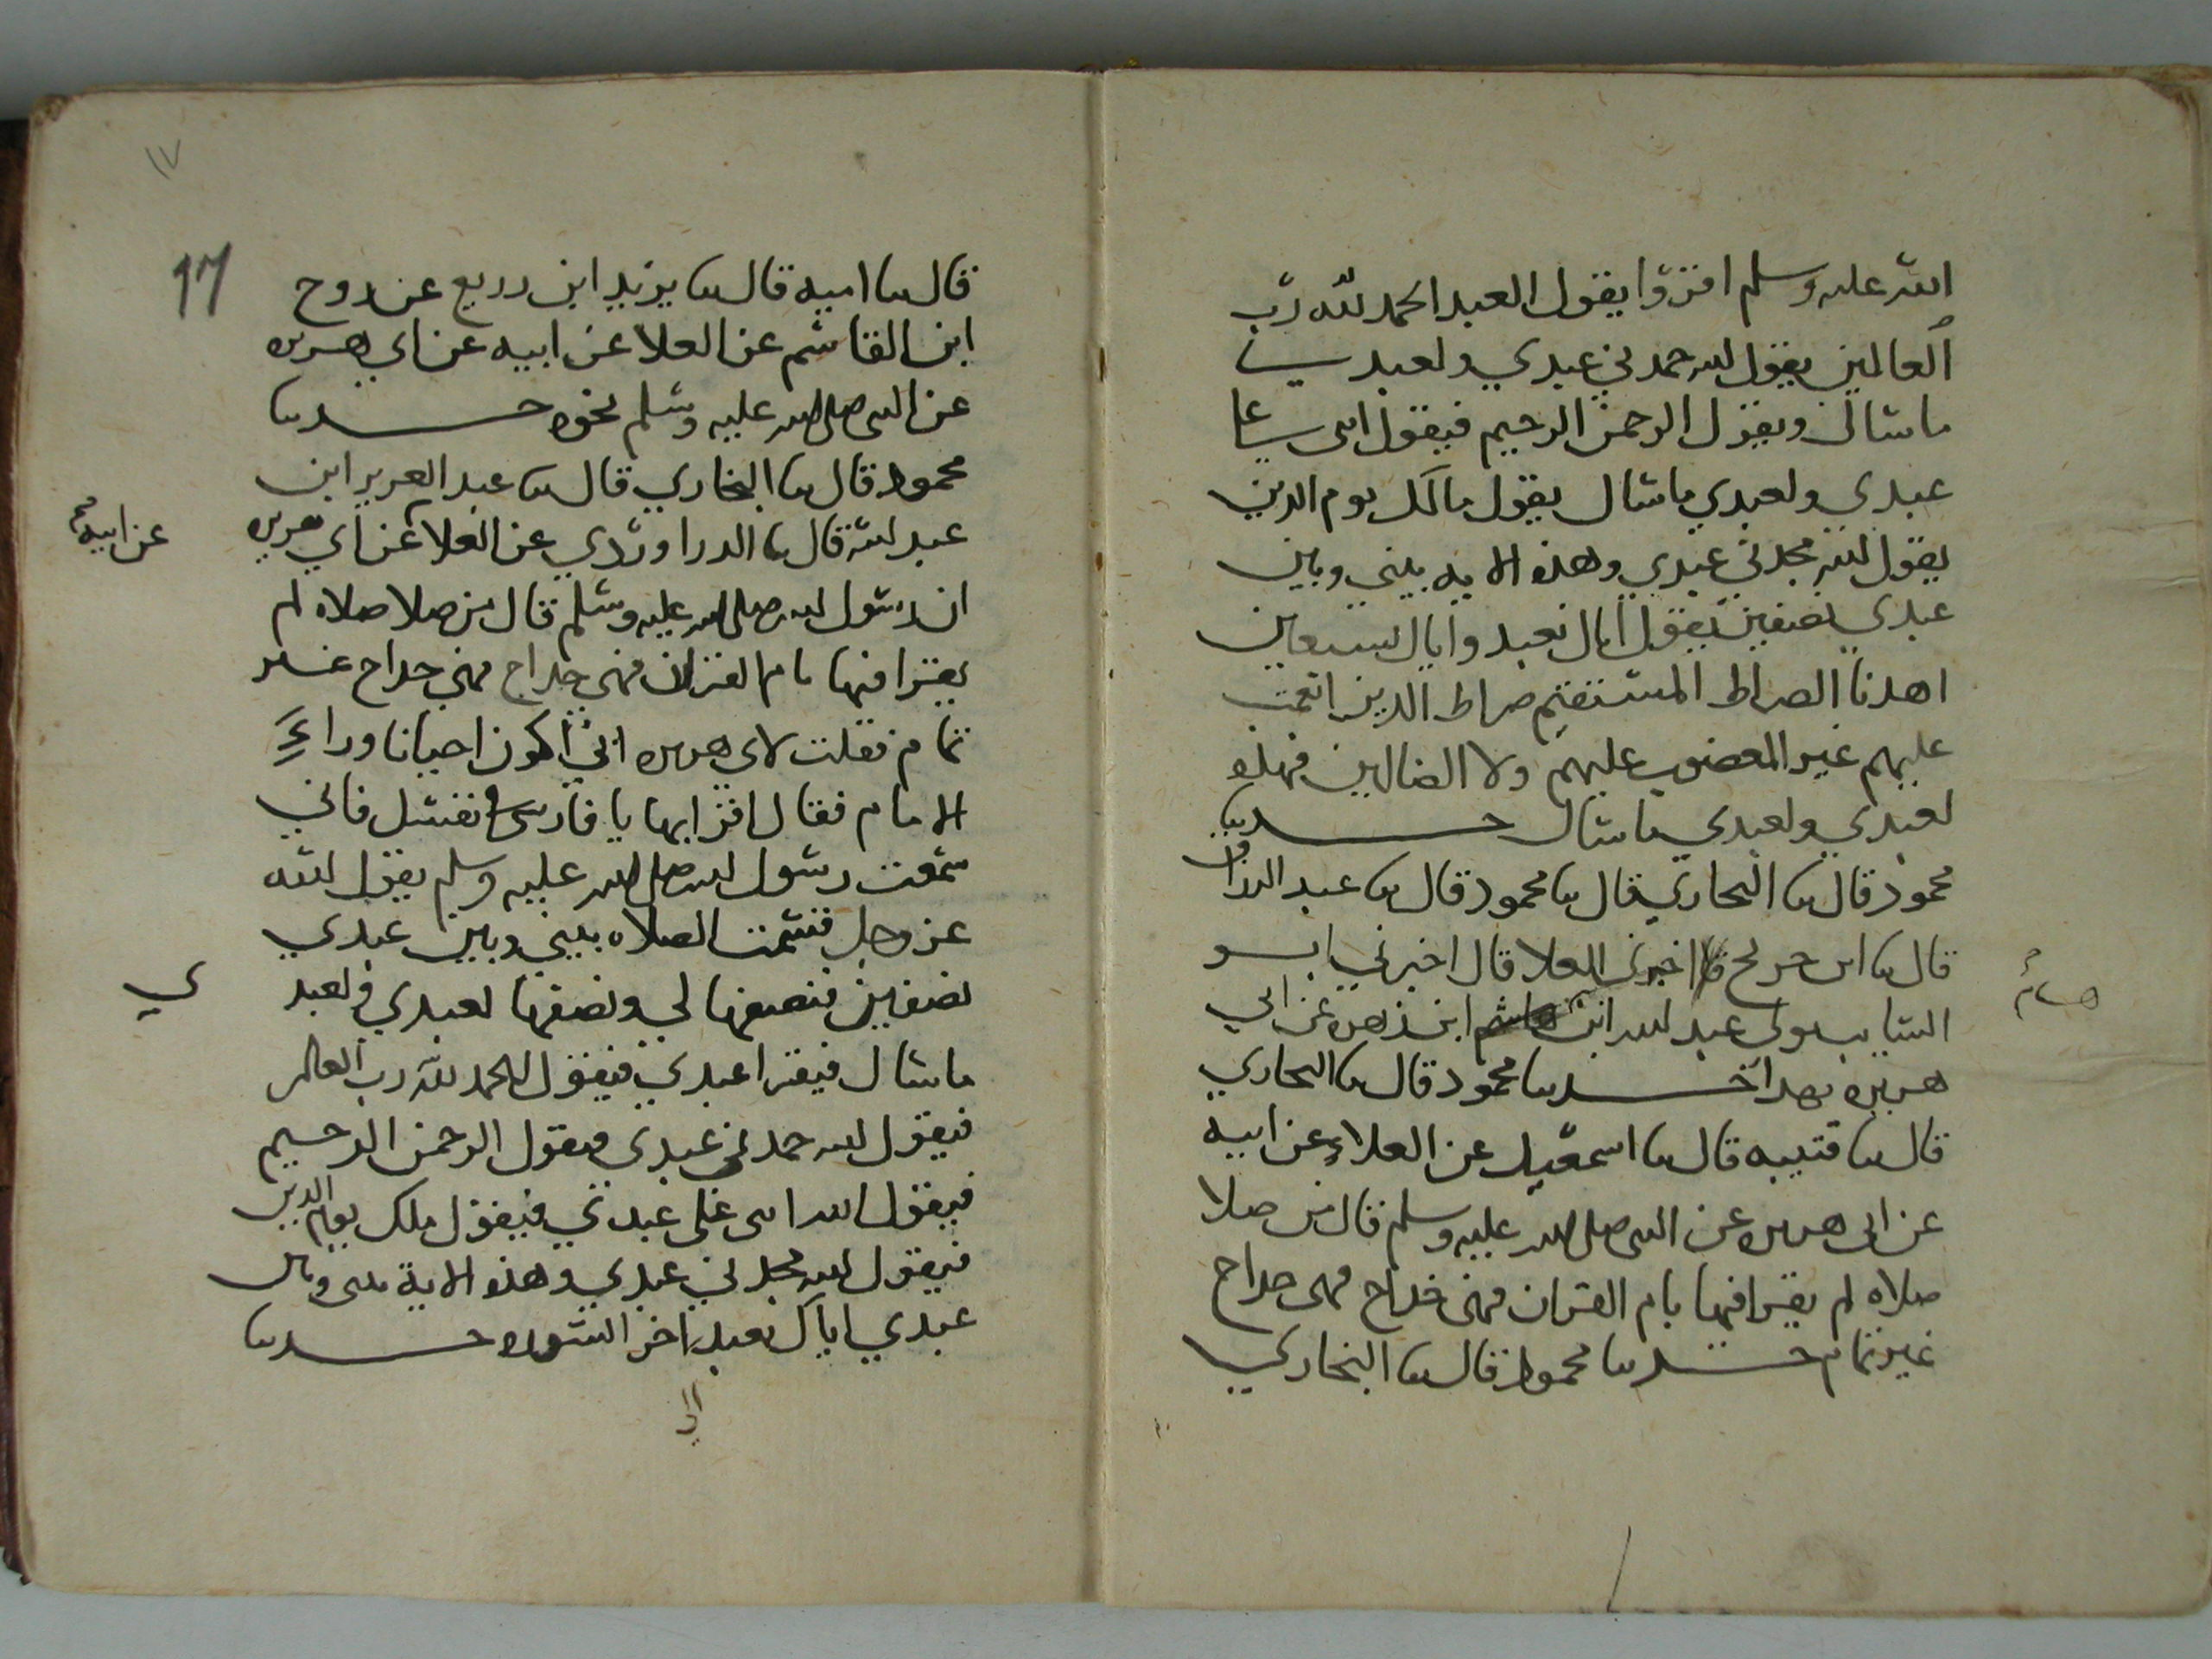 الله عليه وسلم اقرؤا يقول العبد الحمد لله رب
العالمين يقول الله حمدني عبدي ولعبدي
ما سال ويقول الرحمن الرحيم فيقول اثنى علي
عبدي ولعبدي ما سال يقول مالك يوم الدين
يقول الله مجدني عبدي وهذه الايه بيني وبين
عبدي نصفين يقول اياك نعبد واياك نستعين
اهدنا الصراط المستقيم صراط الدين انعمت
عليهم غير المغضوب عليهم ولا الضالين فهذه
لعبدي ولعبدي ما سال حدثنا
محمود قال ثنا البخاري قال ثنا محمود قال ثنا عبد الرزاق
قال ثنا ابن جريج اخبرني العلا قال اخبرني ابو
السايب مولى عبد الله ابن هاشم ابن زهره عن ابي
هشام
هريره بهدا حدثنا محمود قال ثنا البخاري
قال ثنا قتيبه قال ثنا اسمعيل عن العلاء عن ابيه
عن ابي هريره عن النبي صلى الله عليه وسلم قال من صلا
صلاه لم يقرا فيها بام القران فهى خداج فهى خداج
غير تمام حدثنا محمود قال ثنا البخاري
١٧
17
قال ثنا اميه قال ثنا يزيد ابن زريع عن روح
ابن القاسم عن العلا عن ابيه عن ابي هريره
عن النبي صلى الله عليه وسلم نحوه حدثنا
محمود قال ثنا البخاري قال ثنا عبد العزيز ابن
عبد الله قال ثنا الدراوردي عن العلا عن ابي هريره
عن ابيه
ان رسول الله صلى الله عليه وسلم قال من صلا صلاه لم
يقرا فيها بام القران فهى خداج فهى خداج غير
تمام فقلت لابي هريره اني اكون احيانا وراء
الامام فقال اقرا بها يا فارسي في نفسك فاني
سمعت رسول الله صلى الله عليه وسلم يقول الله
عز وجل قسمت الصلاه بيني وبين عبدي
نصفين فنصفها لي ونصفها لعبدي ولعبد
ي
ما سال فيقرا عبدي فيقول الحمد لله رب العالمين
فيقول الله حمدني عبدي فيقول الرحمن الرحيم
فيقول الله اثنى على عبدي فيقول ملك يوم الدين
فيقول الله مجدني عبدي وهذه الاية بيني وبين
عبدي اياك نعبد اخر السوره حدثنا